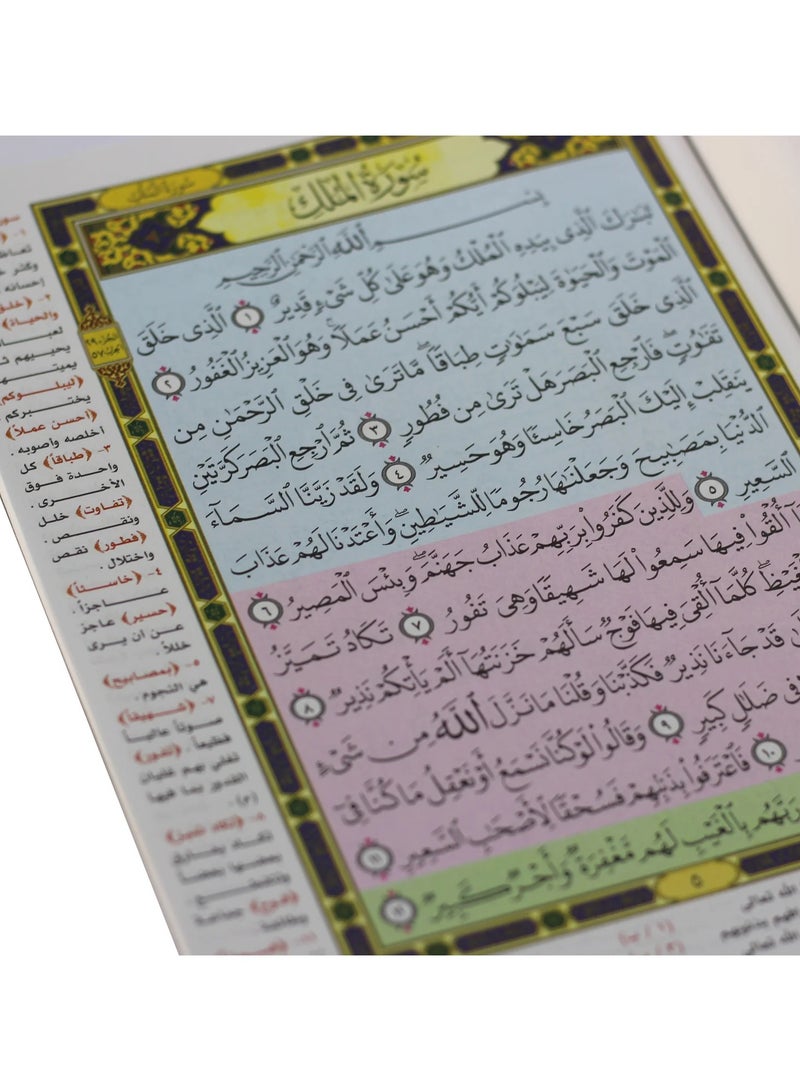 سُورَةُ المُلْكِ
بِسْمِ ٱللَّهِ ٱلرَّحْمَٰنِ ٱلرَّحِيمِ
تَبَٰرَكَ ٱلَّذِى بِيَدِهِ ٱلْمُلْكُ وَهُوَ عَلَىٰ كُلِّ شَىْءٍ قَدِيرٌ ١ ٱلَّذِى خَلَقَ
ٱلْمَوْتَ وَٱلْحَيَوٰةَ لِيَبْلُوَكُمْ أَيُّكُمْ أَحْسَنُ عَمَلًا ۚ وَهُوَ ٱلْعَزِيزُ ٱلْغَفُورُ ٢
ٱلَّذِى خَلَقَ سَبْعَ سَمَٰوَٰتٍ طِبَاقًا ۖ مَّا تَرَىٰ فِى خَلْقِ ٱلرَّحْمَٰنِ مِن
تَفَٰوُتٍ ۖ فَٱرْجِعِ ٱلْبَصَرَ هَلْ تَرَىٰ مِن فُطُورٍ ٣ ثُمَّ ٱرْجِعِ ٱلْبَصَرَ كَرَّتَيْنِ
يَنقَلِبْ إِلَيْكَ ٱلْبَصَرُ خَاسِئًا وَهُوَ حَسِيرٌ ٤ وَلَقَدْ زَيَّنَّا ٱلسَّمَآءَ
ٱلدُّنْيَا بِمَصَٰبِيحَ وَجَعَلْنَٰهَا رُجُومًا لِّلشَّيَٰطِينِ ۖ وَأَعْتَدْنَا لَهُمْ عَذَابَ
ٱلسَّعِيرِ ٥ وَلِلَّذِينَ كَفَرُوا۟ بِرَبِّهِمْ عَذَابُ جَهَنَّمَ ۖ وَبِئْسَ ٱلْمَصِيرُ ٦
أُلْقُوا۟ فِيهَا سَمِعُوا۟ لَهَا شَهِيقًا وَهِىَ تَفُورُ ٧ تَكَادُ تَمَيَّزُ
ٱلْغَيْظِ ۖ كُلَّمَآ أُلْقِىَ فِيهَا فَوْجٌ سَأَلَهُمْ خَزَنَتُهَآ أَلَمْ يَأْتِكُمْ نَذِيرٌ ٨
قَدْ جَآءَنَا نَذِيرٌ فَكَذَّبْنَا وَقُلْنَا مَا نَزَّلَ ٱللَّهُ مِن شَىْءٍ
فِى ضَلَٰلٍ كَبِيرٍ ٩ وَقَالُوا۟ لَوْ كُنَّا نَسْمَعُ أَوْ نَعْقِلُ مَا كُنَّا فِىٓ
١٠ فَٱعْتَرَفُوا۟ بِذَنۢبِهِمْ فَسُحْقًا لِّأَصْحَٰبِ ٱلسَّعِيرِ ١١
رَبَّهُم بِٱلْغَيْبِ لَهُم مَّغْفِرَةٌ وَأَجْرٌ كَبِيرٌ ١٢
٥
﴿ليبلوكم﴾
يختبركم
﴿أحسن عملاً﴾
أخلصه وأصوبه .
٣- ﴿طباقاً﴾ كل
واحدة فوق
الأخرى .
﴿تفاوت﴾ خلل
ونقص .
﴿فطور﴾ نقص
واختلال .
٤- ﴿خاسئاً﴾
عاجزاً .
﴿حسير﴾ عاجز
عن أن يرى
خللاً .
٥- ﴿بمصابيح﴾
هي النجوم .
٧- ﴿شهيقاً﴾
صوتاً عالياً
فظيعاً . ﴿تفور﴾
تغلي بهم غليان
القدور بما فيها